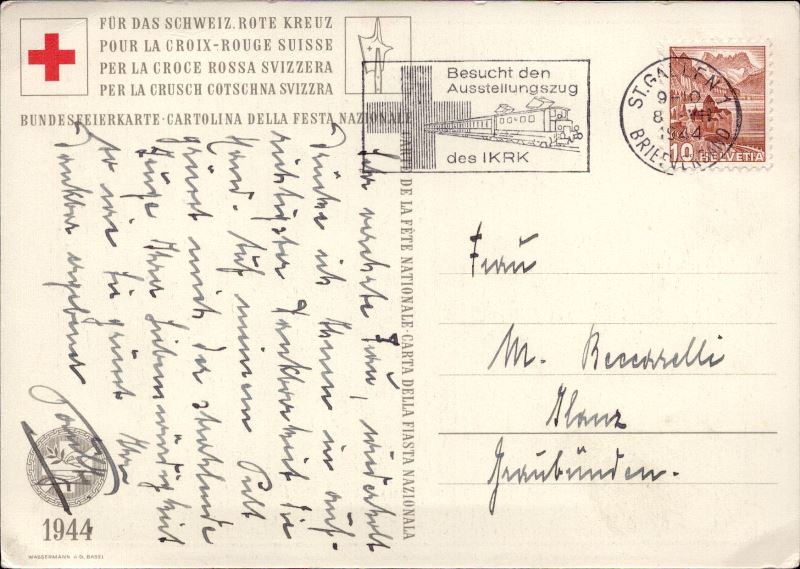 FÜR DAS SCHWEIZ. ROTE KREUZ
POUR LA CROIX-ROUGE SUISSE
PER LA CROCE ROSSA SVIZZERA
PER LA CRUSCH COTSCHNA SVIZZRA
BUNDESFEIERKARTE · CARTOLINA DELLA FESTA NAZIONALE
CARTE DE LA FÊTE NATIONALE · CARTA DELLA FIASTA NAZIONALA
Besucht den
Ausstellungszug
des IKRK
ST. GALLEN 1
1944
BRIEFVERSAND
10 HELVETIA
Sehr verehrte Frau, wiederholt
drücke ich Ihnen in auf-
richtigster Dankbarkeit die
Hand. Auf meinem Pult
grüsst mich der strahlende
Zeuge Ihrer Liebenswürdigkeit
so wie Sie grüsst Ihr
dankbar ergebener
Frau
M. Beccarelli
Ilanz
Graubünden.
1944
WASSERMANN A G. BASEL